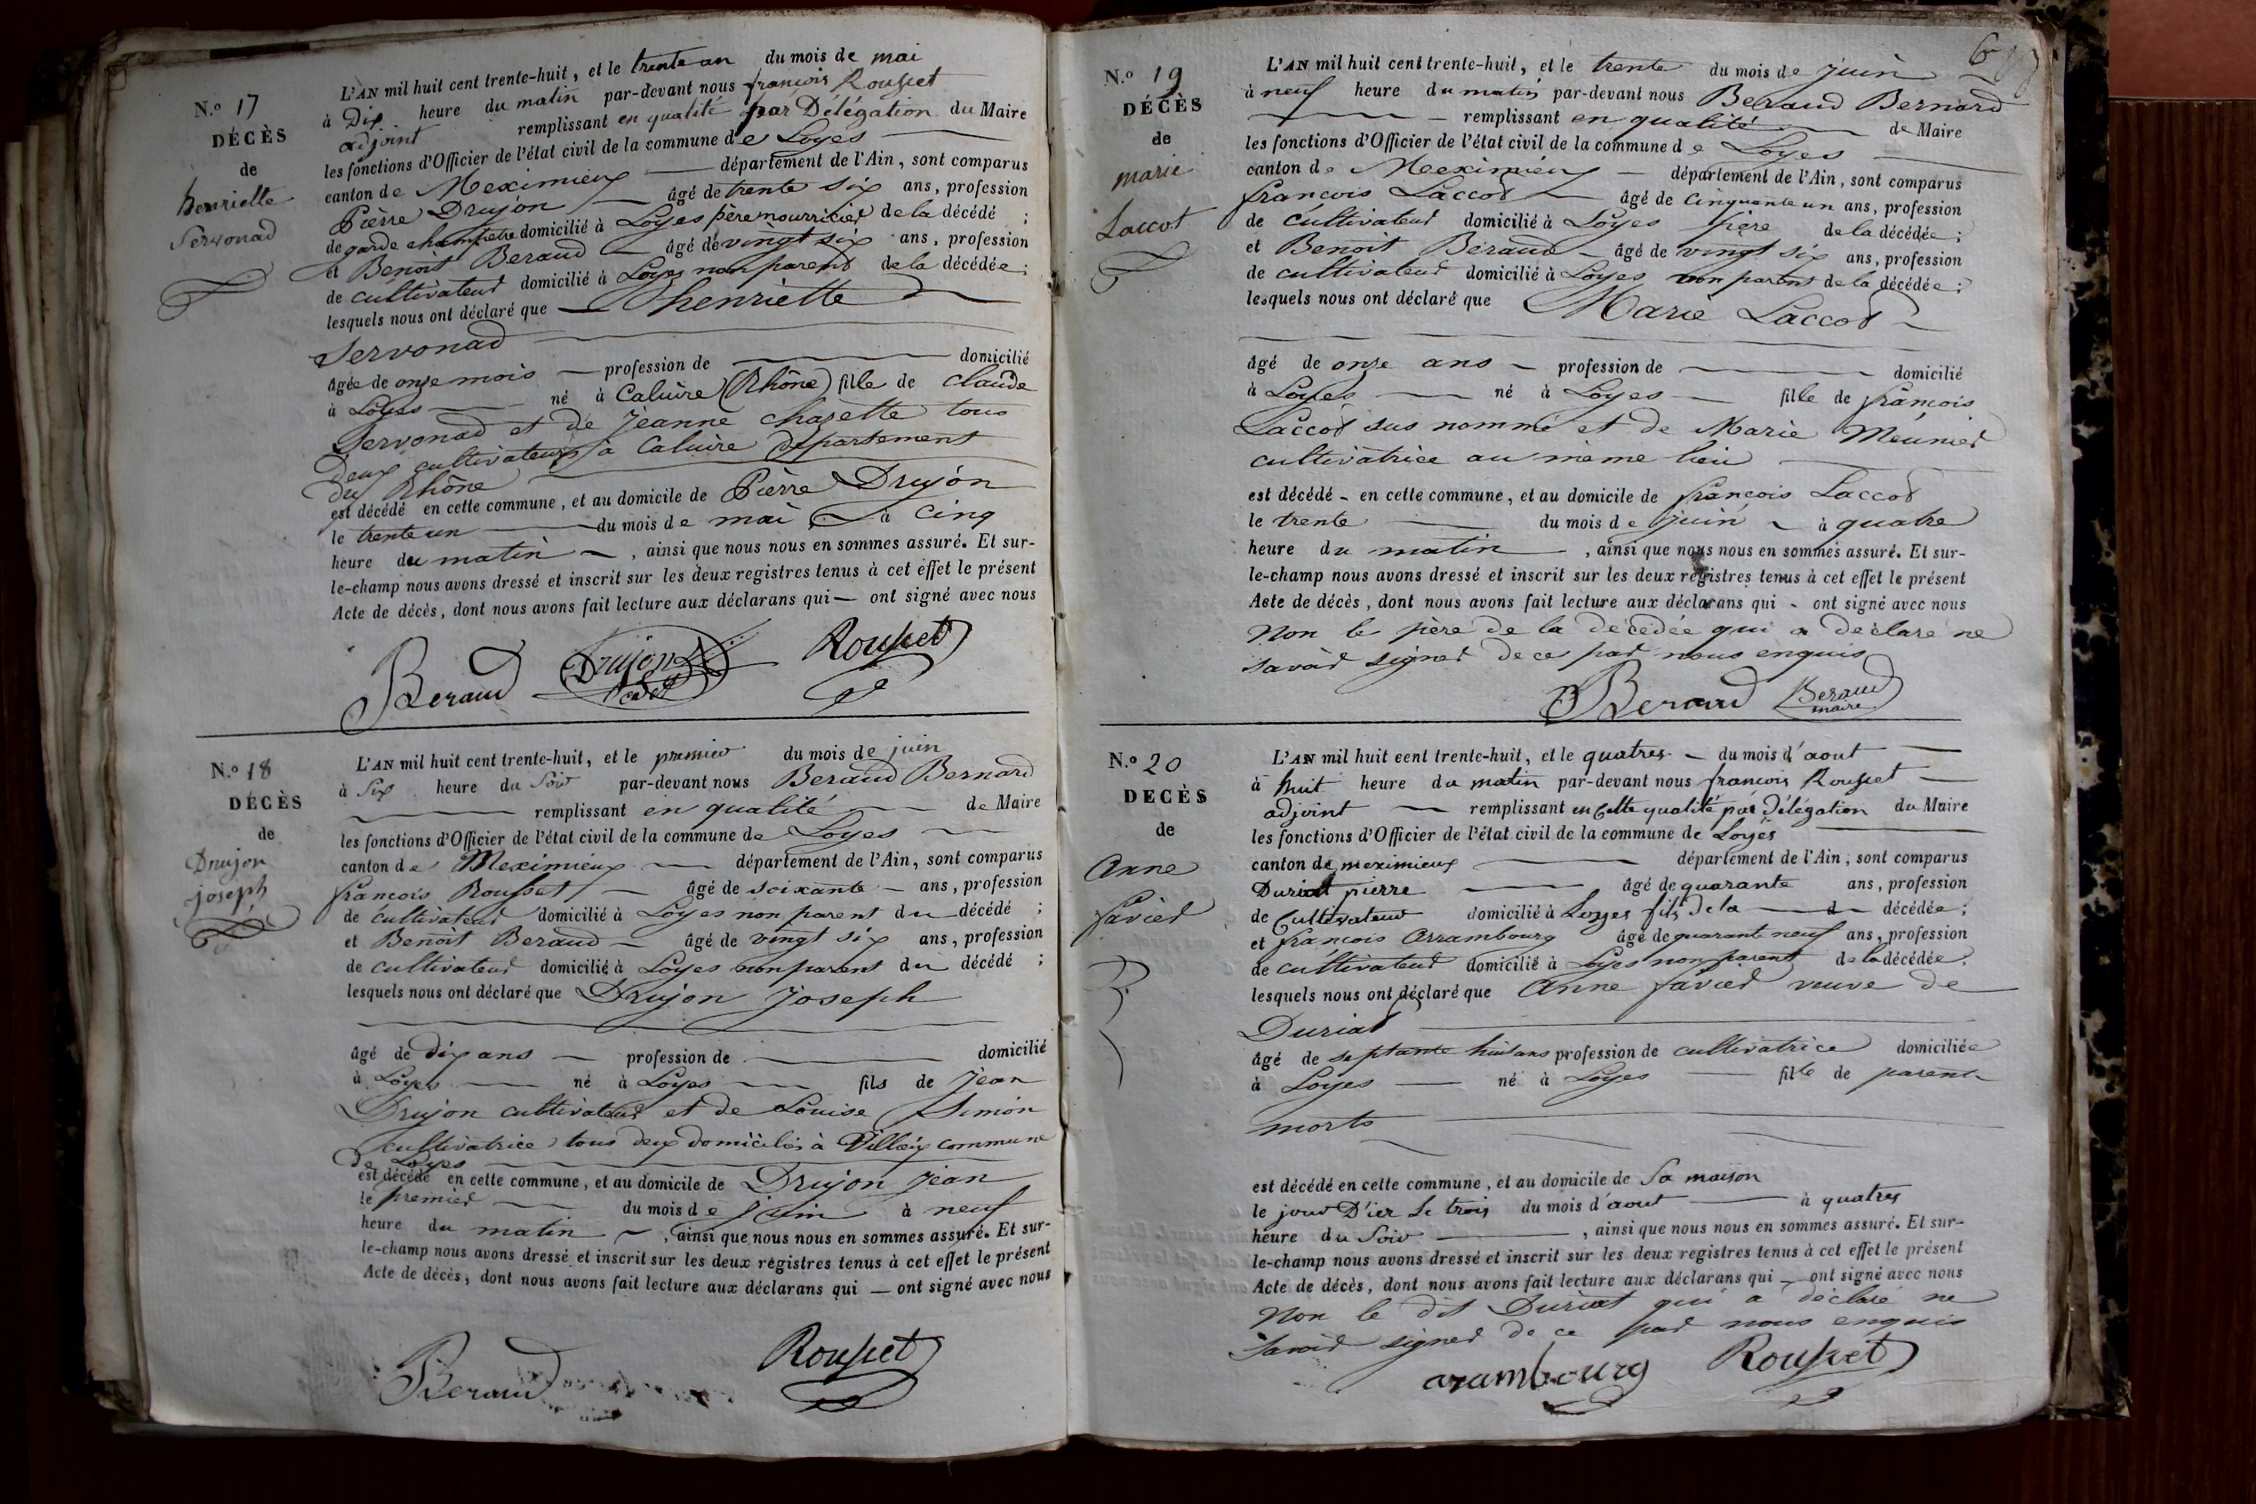 N.º 17
DÉCÈS
de
henriette
Servonad
L'AN mil huit cent trente-huit, et le trente un du mois de mai
à Dix heure du matin par-devant nous francois Rousset
adjoint remplissant en qualité par Délégation du Maire
les fonctions d'Officier de l'état civil de la commune de Loyes
canton de Meximieux département de l'Ain, sont comparus
Pièrre Drujon âgé de trente six ans, profession
de garde champetre domicilié à Loyes père nourricier de la décédé ;
et Benoit Beraud âgé de vingt six ans, profession
de cultivateur domicilié à Loyes non parent de la décédée ;
lesquels nous ont déclaré que henriette
Servonad
âgée de onze mois profession de domicilié
à Loyes né à Caluire (Rhône) fille de claude
Servonad et de Jeanne chazette tous
deux cultivateurs à Caluire département
du Rhône
est décédé en cette commune, et au domicile de Pièrre Drujon
le trente un du mois de mai à cinq
heure du matin , ainsi que nous nous en sommes assuré. Et sur-
le-champ nous avons dressé et inscrit sur les deux registres tenus à cet effet le présent
Acte de décès, dont nous avons fait lecture aux déclarans qui — ont signé avec nous
Beraud Drujon Rousset
N.º 18
DÉCÈS
de
Drujon
joseph
L'AN mil huit cent trente-huit, et le premier du mois de juin
à Six heure du Soir par-devant nous Beraud Bernard
remplissant en qualité de Maire
les fonctions d'Officier de l'état civil de la commune de Loyes
canton de Meximieux département de l'Ain, sont comparus
francois Rousset âgé de soixante ans, profession
de cultivateur domicilié à Loyes non parent du décédé ;
et Benoit Beraud âgé de vingt six ans, profession
de cultivateur domicilié à Loyes non parent du décédé ;
lesquels nous ont déclaré que Drujon joseph
âgé de dix ans profession de domicilié
à Loyes né à Loyes fils de jean
Drujon cultivateur et de Louise Simon
cultivatrice tous deux domiciliés à Villieu commune
de Loyes
est décédé en cette commune, et au domicile de Drujon jean
le premier du mois de juin à neuf
heure du matin , ainsi que nous nous en sommes assuré. Et sur-
le-champ nous avons dressé et inscrit sur les deux registres tenus à cet effet le présent
Acte de décès, dont nous avons fait lecture aux déclarans qui — ont signé avec nous
Beraud Rousset
6
N.º 19
DÉCÈS
de
marie
Laccot
L'AN mil huit cent trente-huit, et le trente du mois de juin
à neuf heure du matin par-devant nous Beraud Bernard
remplissant en qualité de Maire
les fonctions d'Officier de l'état civil de la commune de Loyes
canton de Meximieux département de l'Ain, sont comparus
francois Laccot âgé de cinquante un ans, profession
de cultivateur domicilié à Loyes père de la décédée ;
et Benoit Beraud âgé de vingt six ans, profession
de cultivateur domicilié à Loyes non parent de la décédée ;
lesquels nous ont déclaré que Marie Laccot
âgé de onze ans profession de domicilié
à Loyes né à Loyes fille de francois
Laccot sus nommé et de Marie Meunier
cultivatrice au même lieu
est décédé en cette commune, et au domicile de francois Laccot
le trente du mois de juin à quatre
heure du matin , ainsi que nous nous en sommes assuré. Et sur-
le-champ nous avons dressé et inscrit sur les deux registres tenus à cet effet le présent
Acte de décès, dont nous avons fait lecture aux déclarans qui - ont signé avec nous
Non le père de la décédée qui a déclaré ne
savoir signer de ce par nous enquis
Beraud Beraud
maire
N.º 20
DECÈS
de
Anne
favier
L'AN mil huit cent trente-huit, et le quatres du mois d'aout
à huit heure du matin par-devant nous francois Rousset
adjoint remplissant en cette qualité par Délégation du Maire
les fonctions d'Officier de l'état civil de la commune de Loyes
canton de meximieux département de l'Ain, sont comparus
Duriat pierre âgé de quarante ans, profession
de Cultivateur domicilié à Loyes fils de la décédée ;
et francois Arrambourg âgé de quarante neuf ans, profession
de cultivateur domicilié à Loyes non parent de la décédée ;
lesquels nous ont déclaré que Anne favier veuve de
Duriat
âgé de septante huit ans profession de cultivatrice domiciliée
à Loyes né à Loyes fille de parents
morts
est décédé en cette commune, et au domicile de Sa maison
le jour D'ier Le trois du mois d'aout à quatres
heure du Soir , ainsi que nous nous en sommes assuré. Et sur-
le-champ nous avons dressé et inscrit sur les deux registres tenus à cet effet le présent
Acte de décès, dont nous avons fait lecture aux déclarans qui — ont signé avec nous
Non le dit Duriat qui a déclaré ne
savoir signer de ce par nous enquis
arambourg Rousset